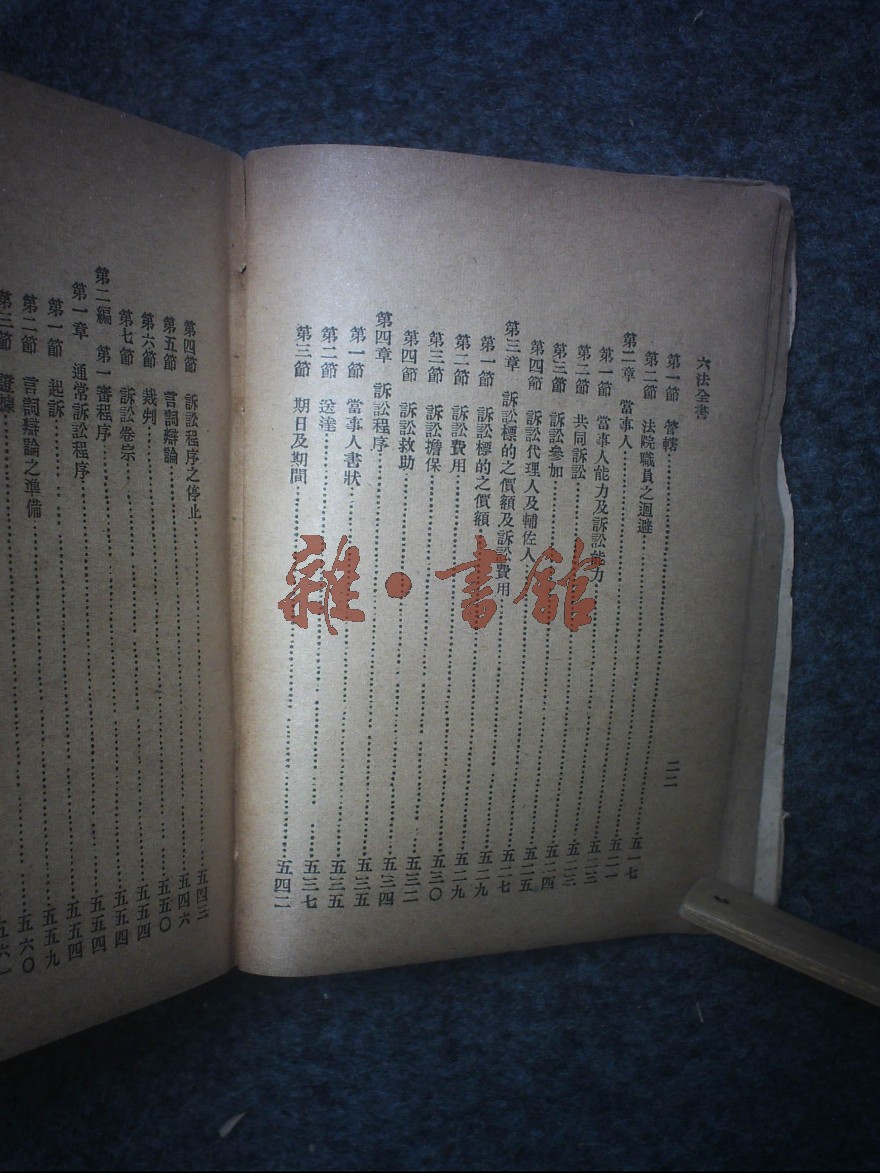 六法全書 二二
第一節 管轄……五一七
第二節 法院職員之迴避……五二一
第二章 當事人……五二三
第一節 當事人能力及訴訟能力……五二三
第二節 共同訴訟……五二四
第三節 訴訟參加……五二五
第四節 訴訟代理人及輔佐人……五二七
第三章 訴訟標的之價額及訴訟費用……五二九
第一節 訴訟標的之價額……五二九
第二節 訴訟費用……五三〇
第三節 訴訟擔保……五三二
第四節 訴訟救助……五三四
第四章 訴訟程序……五三五
第一節 當事人書狀……五三五
第二節 送達……五三七
第三節 期日及期間……五四二
第四節 訴訟程序之停止……五四三
第五節 言詞辯論……五四六
第六節 裁判……五五〇
第七節 訴訟卷宗……五五四
第二編 第一審程序……五五四
第一章 通常訴訟程序……五五四
第一節 起訴……五五四
第二節 言詞辯論之準備……五五九
第三節 證據……五六〇
五六一
雜·書館